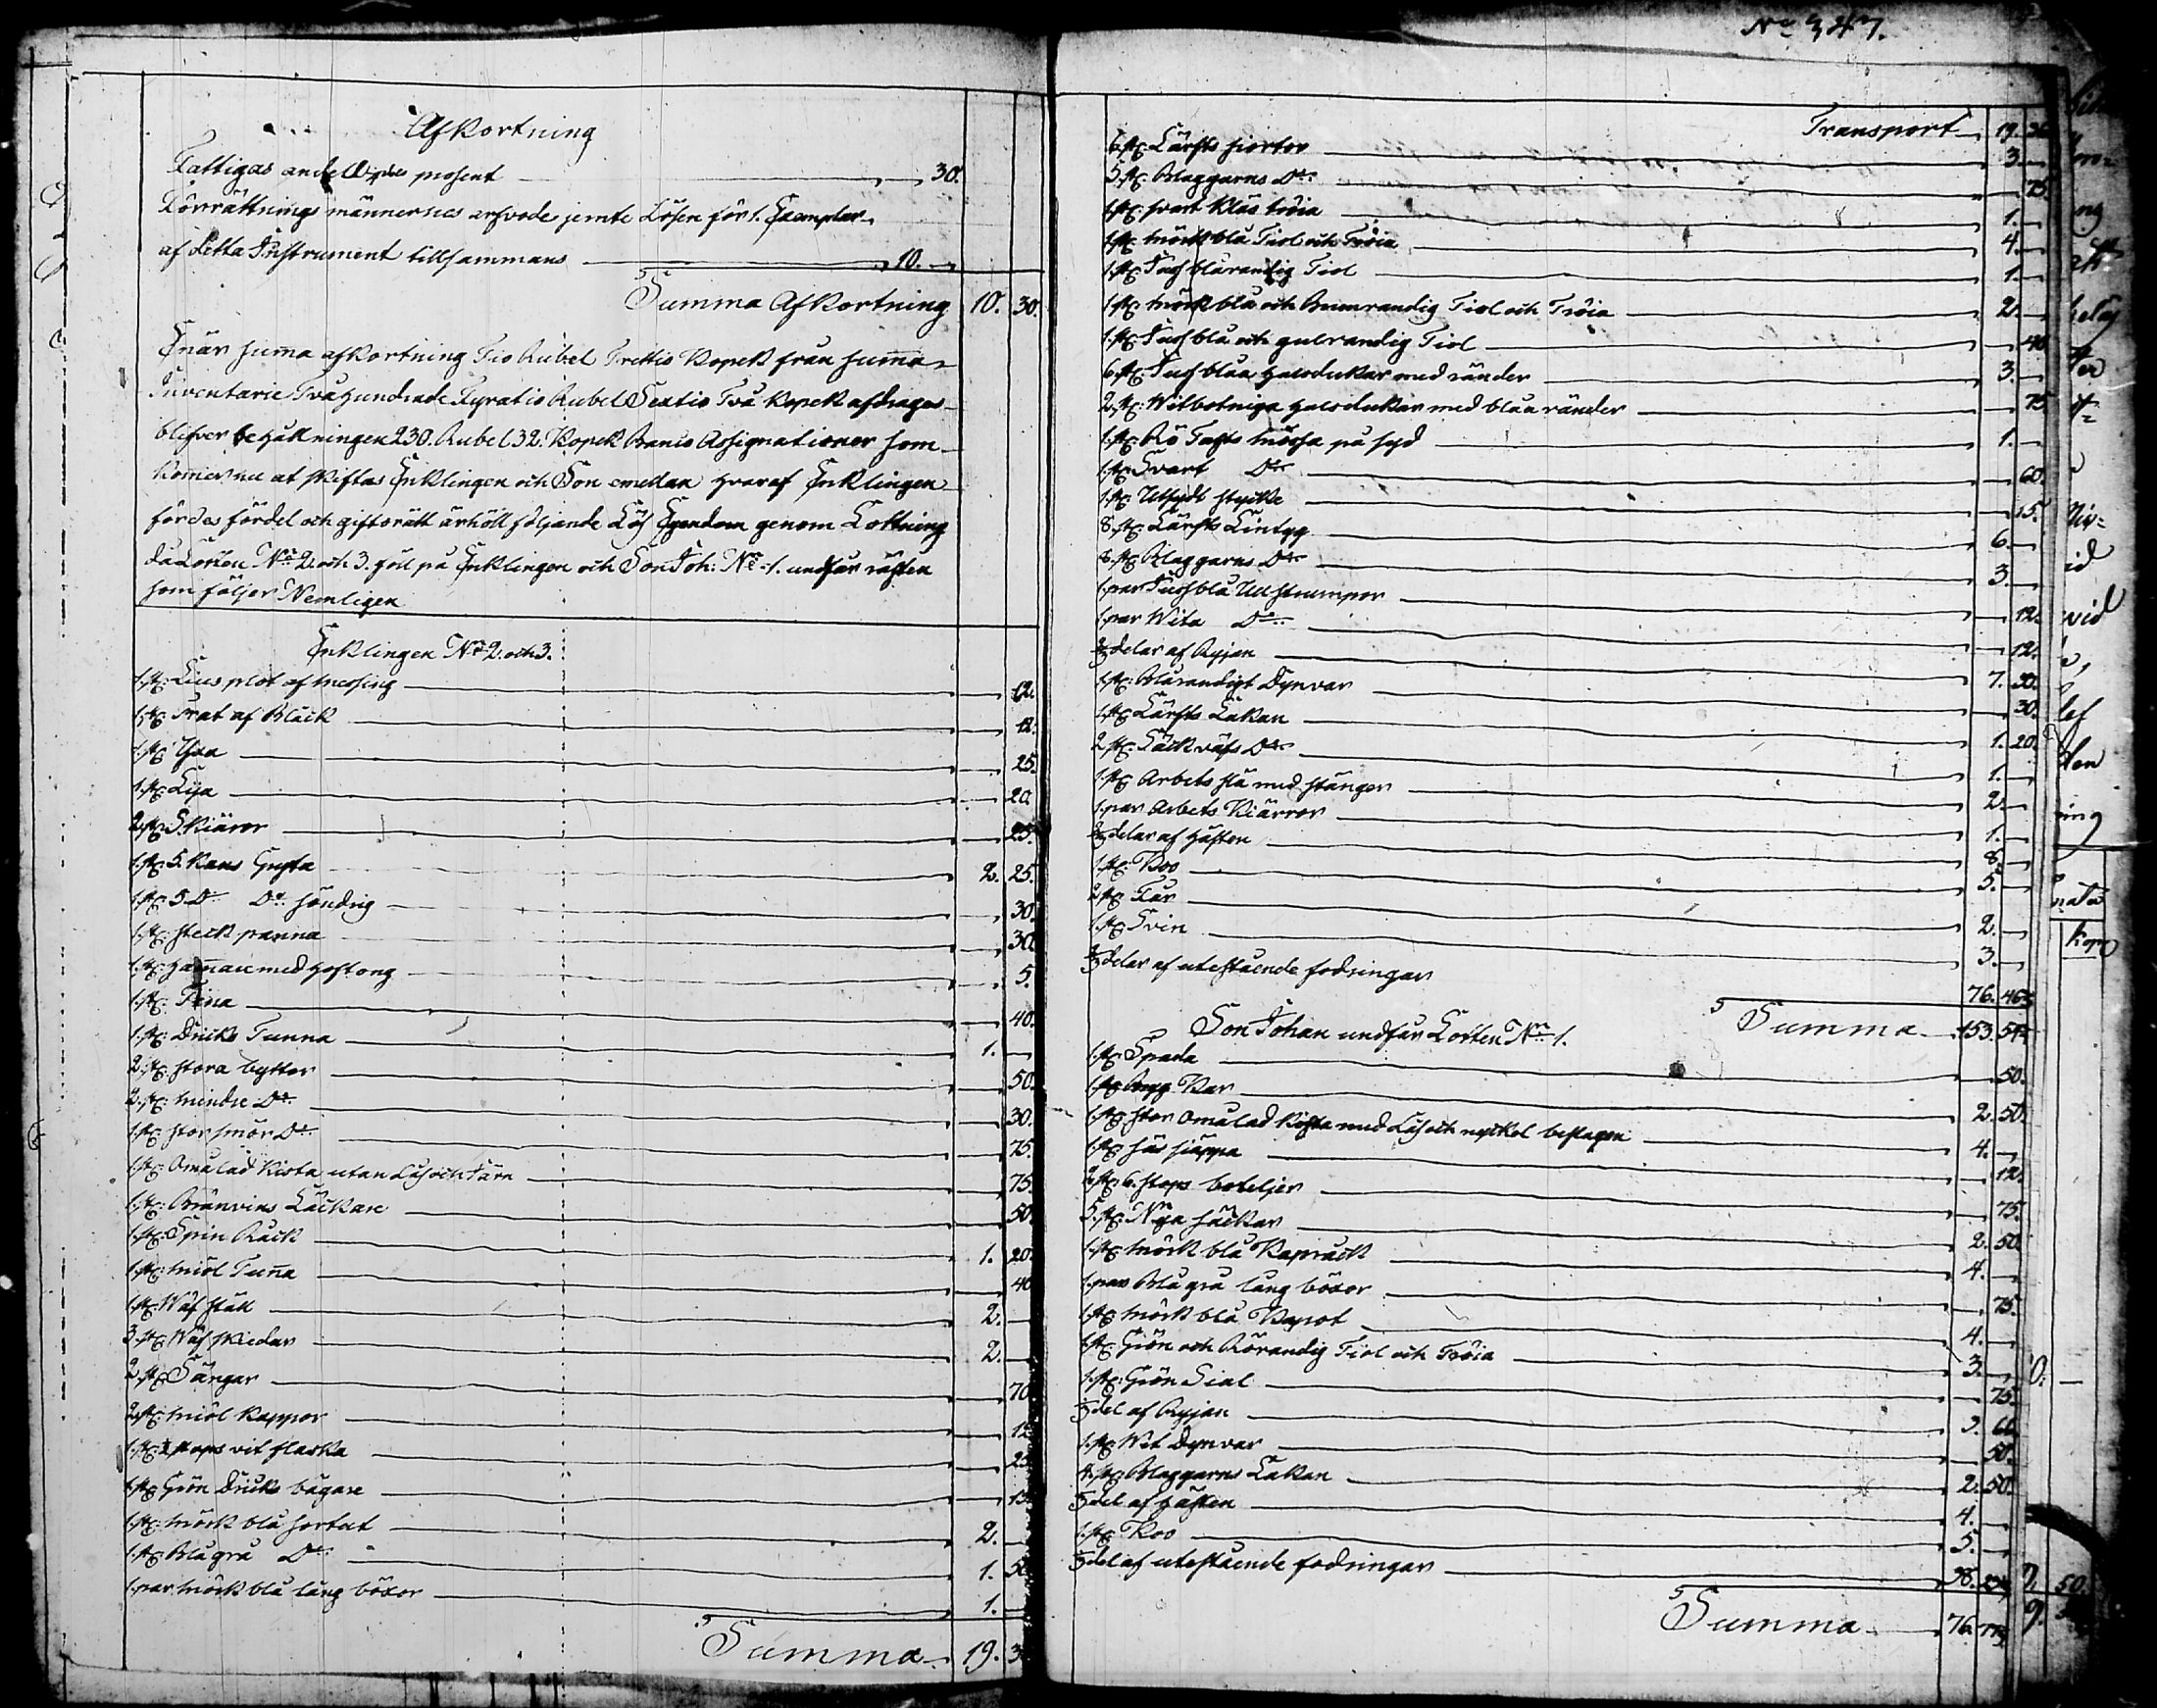 Afkortning
Fattigas andel prosent 30.
Förrättnings männernes arfvode jemte Lösen för 1. Exemplar
af detta Instrument tillsammans 10.
Summa Afkortning 10. 30.
När summa afkortning Tio Rubel Trettio Kopek från summa
Inventarie Två Hundrade Fyratio Rubel Sextio Två Kopek afdrages
blifver behållningen 230. Rubel 32. Kopek Banco Assignationer som
kommer nu at skiftas Enklingen och Son emellan hvaraf Enklingen
för des fördel och giftorätt ärhöll följande Lös Egendom genom Lottning
då Lotten No 2. och 3. föll på Enklingen och Son Joh: No 1. undfår resten
som följer Nemligen
Enklingen No 2. och 3.
1. st: Lius plåt af Messing 12.
1. st: Frat af Bläck 12.
1. st: Yxa 25.
1. st: Lija 20.
2. st: Skiäror 25.
1. st: 5. Kans Gryta 2. 25.
1. st: 5. Do Do söndrig 30.
1. st: steck panna 30.
1. st: Hamare med Hoftong 5.
1. st: Tina 40.
1. st: Dricks Tunna 1.
2. st: stora bytter 50.
2. st: mindre Do 30.
1. st: stor smör Do 75.
1. st: Omålad Kista utan Lås och Järn 75.
1. st: Bränvins Läckare 50.
1. st: Spin Råck 1. 20.
1. st: miöl Tunna 40
1. st: Wäf ställ 2.
3. st: Wäf skiedar 2.
2. st: Sängar 70
2. st: miöl kappor 12
1. st: stops vit flaska 25
1. st: Grön Dricks bägare 15
1. st: mörk blå sortut 2.
1. st: Blå grå Do 1. 50
1. par mörk blå lång böxor 1.
Summa 19. 3
No 347.
Transport 19. 36
6. st: Lärfts siortor 3.
5. st: Blaggarns Do 75.
1. st: svart Kläs tröia 1.
1. st: mörk blå Tiol och Tröia 4.
1. st: Lius blårandig Tiol 1.
1. st: mörk blå och Brunrandig Tiol och Tröia 2.
1. st: Lius blå och gulrandig Tiol 40
6. st: Lius blåa Halsdukar med ränder 3.
2. st: Witbotniga Halsdukar med blåa ränder 75
1. st: Rö Tafts mössa på syd 1.
1. st: Svart Do 60.
1. st: Utsydt stycke 15.
8. st: Lärfts Lintyg 6.
8. st: Blaggarns Do 3.
1. par Lius blå Ull strumpor 12.
1. par Wita Do 12.
2/3 delar af Ryjan 7. 30.
1. st: Blårandigt Dynvar 30.
1. st: Lärfts Lakan 1. 20.
2. st: Säckväfs Do 1.
1. st: Arbets slä med stänger 2.
1. par Arbets Kiärror 1.
2/3 delar af Hästen 8.
1. st: Koo 5.
2. st: Får 2.
1. st: Svin 3.
2/3 delar af utestående fodringar 76. 46 2/3
Summa 153. 54
Son Johan undfår Lotten No 1.
1. st: Spada 50.
1. st: Brygg Kar 2. 50.
1. st: stor omålad Kista med Lås och nyckel beslagen 4.
1. st: säs siäppa 12.
2. st: 6. stops boteljer 75.
5. st: Nya säckar 2. 50
1. st: mörk blå Kaprack 4.
1. par Blå grå lång böxor 75.
1. st: mörk blå Kapot 4.
1. st: Grön och Rörandig Tiol och Tröia 3.
1. st: Grön Sial 75.
1/3 del af Ryjan 3. 66
1. st: Wit Dynvar 50.
4. st: Blaggarns Lakan 2. 50.
1/3 del af Hästen 4.
1. st: Koo 5.
1/3 del af utestående fodringar 38. 23 1/3
Summa 76. 77